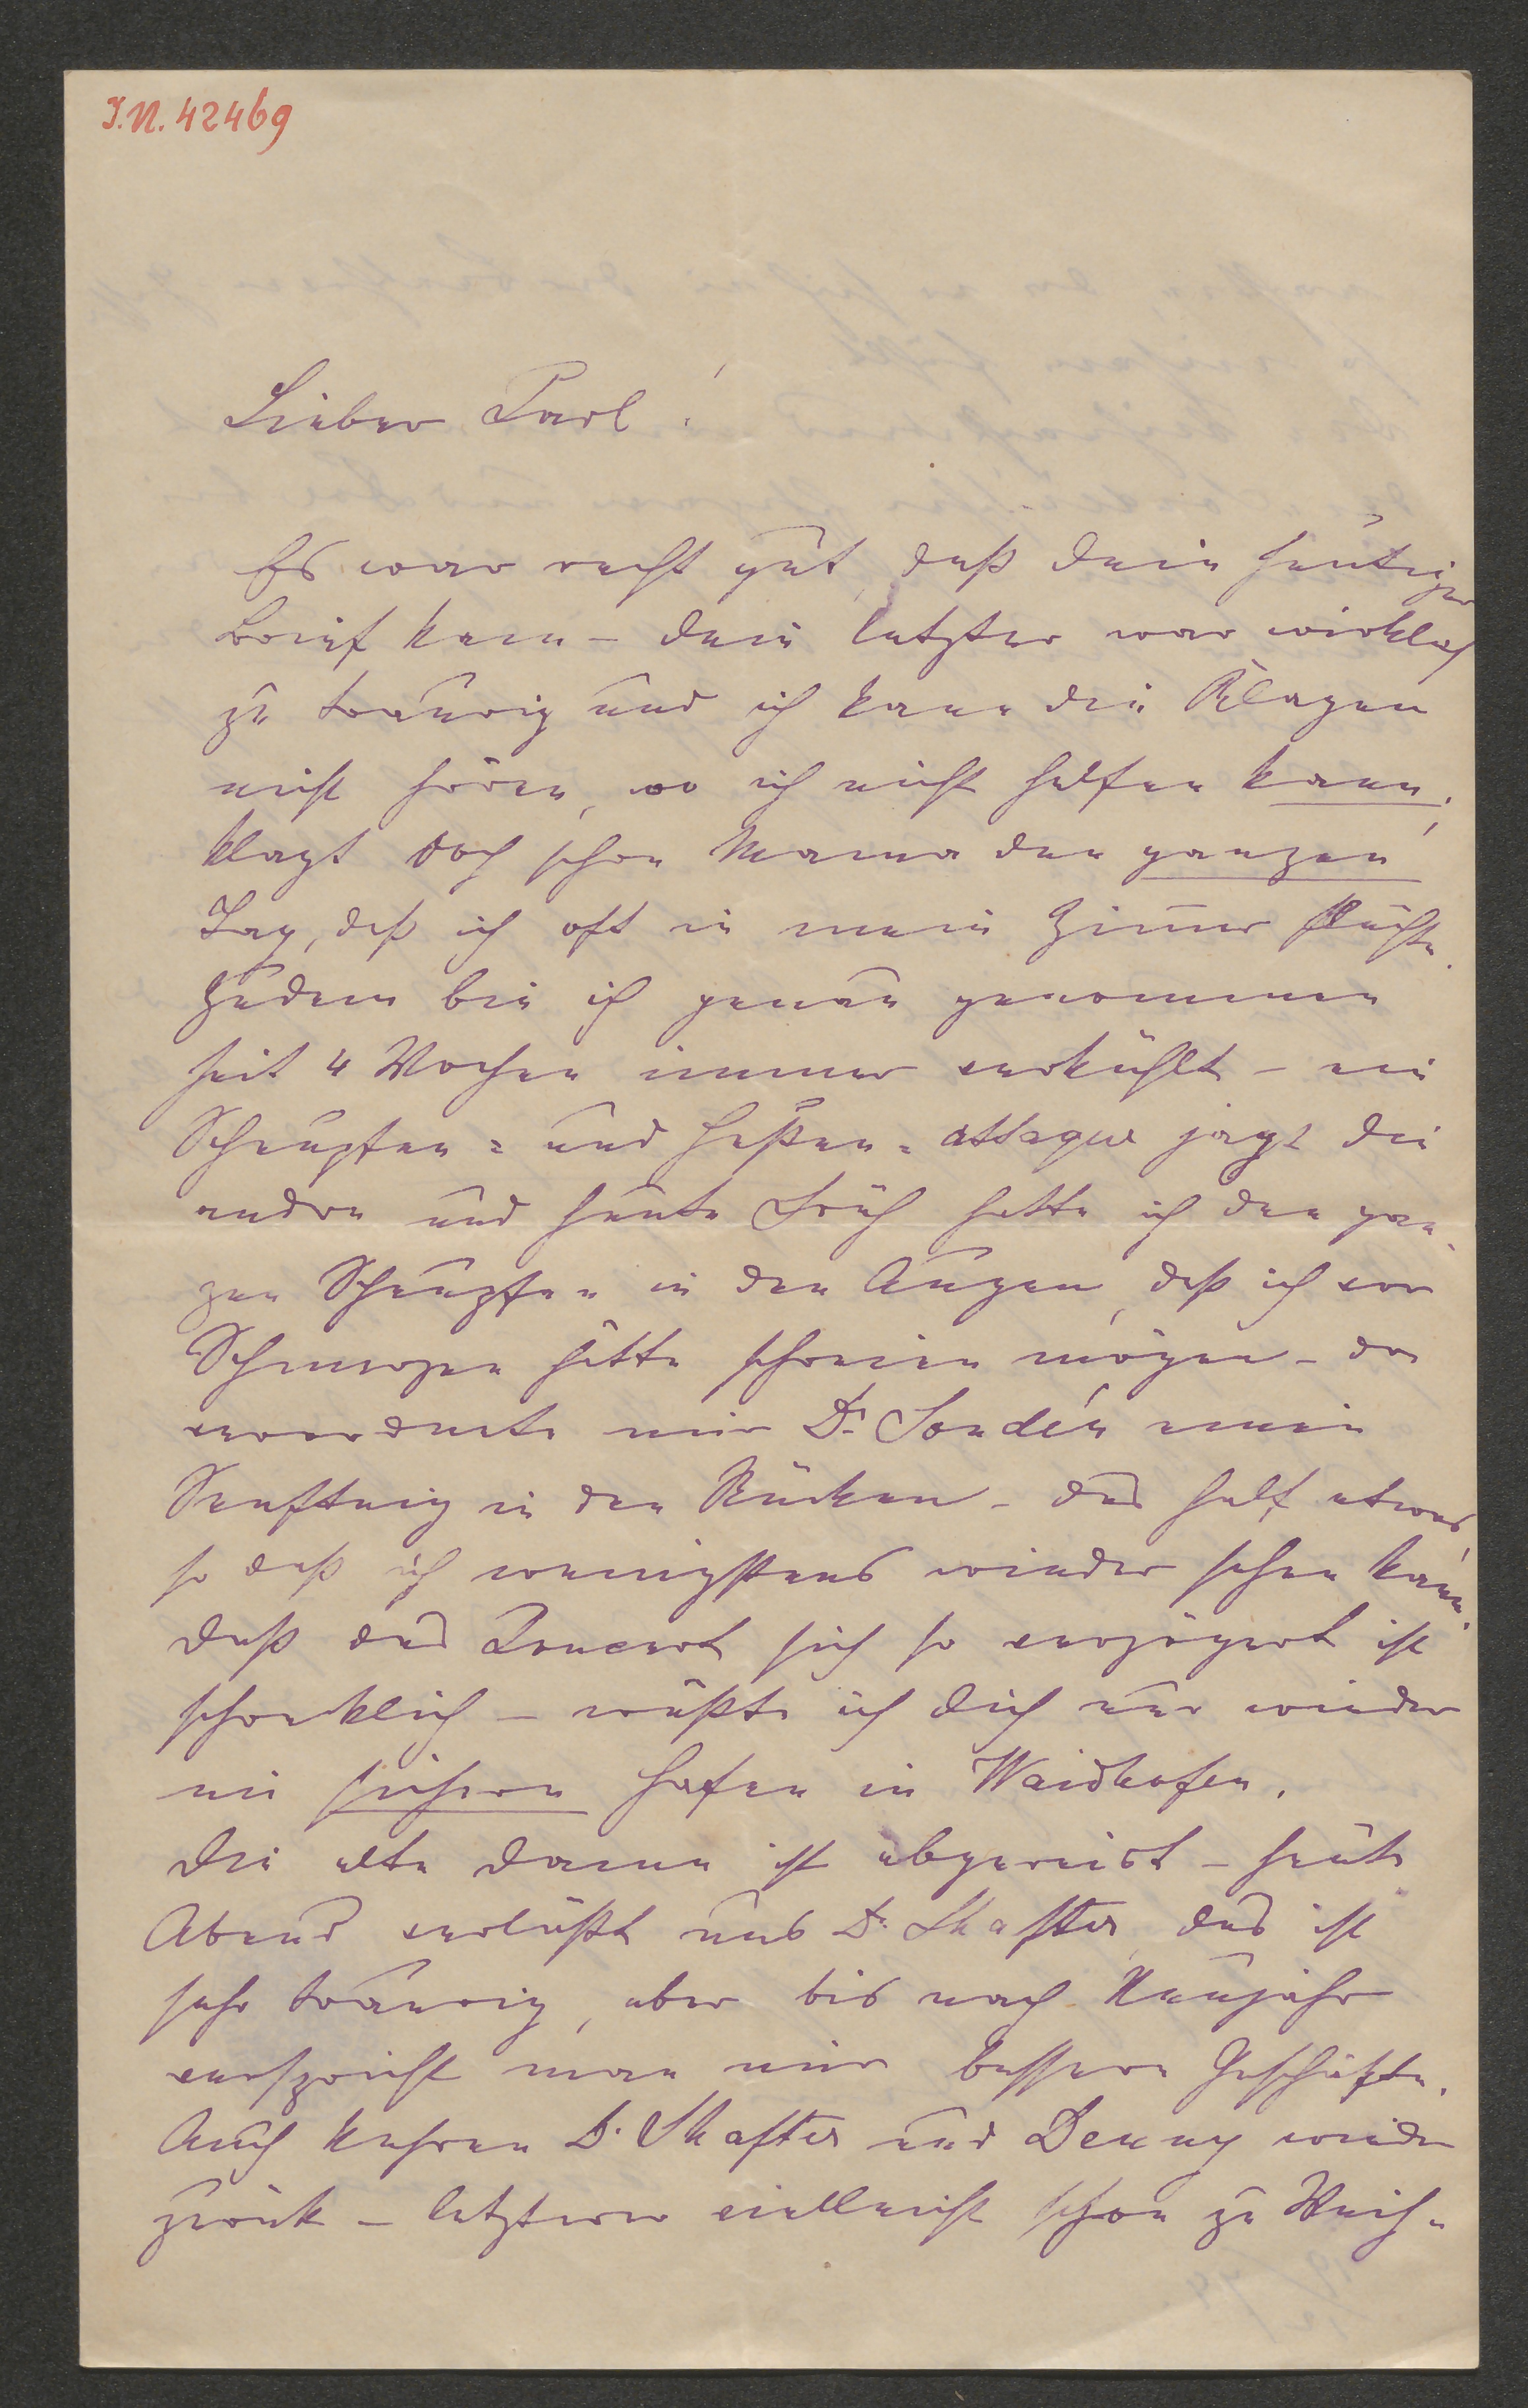 I.N. 42469
Lieber Carl!
Es war recht gut, daß dein heutiger
Brief kam – dein letzter war wirklich
zu traurig und ich kann die Klagen
nicht hören, wo ich nicht helfen kann,
klagt doch schon Mama den ganzen
Tag, daß ich oft in mein Zimmer flüchte.
Zudem bin ich genau genommen
seit 4 Wochen immer verkühlt – eine
Schnupfen- und Husten-attaque jagt die
andre und heute Früh hatte ich den gan-
zen Schnupfen in den Augen, daß ich vor
Schmerzen hätte schreien mögen – da
verordnete mir Dr. Sondén einen
Senfteig in den Rücken – das half etwas
so daß ich wenigstens wieder sehen kann.
Daß das Concert sich so verzögert ist
schrecklich – wüßte ich dich nur wieder
im sichern Hafen in Waidhofen.
Die alte Dame ist abgereist – heute
Abend verläßt uns Dr. Shafter, das ist
sehr traurig, aber bis nach Neujahr
verspricht man mir bessere Geschäfte.
Auch kehren D. Shafter und Denny wieder
zurück – letzterer vielleicht schon zu Weih-